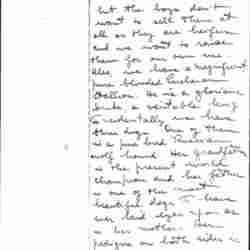 but the boys don't
want to sell them at
all as they are
and we want to raise
them for our own use.
Also, we have a magnificent
pure blooded
Stallion. He is a glorious
a veritable king
Incidentally we have
three dogs. One of them
is a pure bred Russian
wolf hound. Her grandfather
is the present world
champion and her father
is one of the most
beautiful dogs I have
ever laid eyes upon as
is her mother. Her
pedigree on both sides is